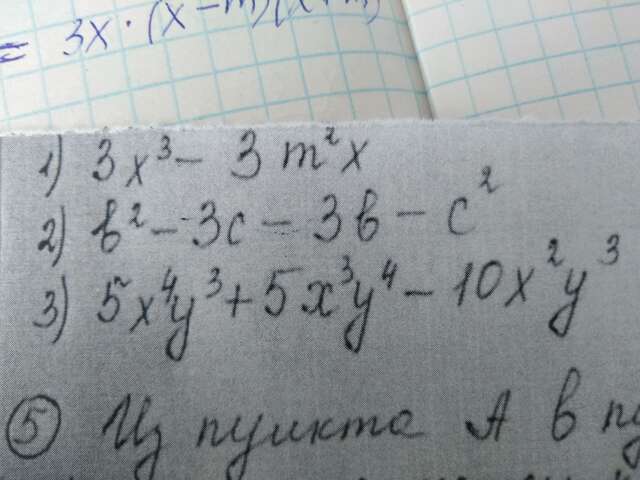 = 3x·(x-m)(x+m)
1) 3x³ - 3m²x
2) в² - 3с - 3в - с²
3) 5x⁴y³ + 5x³y⁴ - 10x²y³
5 Из пункта А в пу